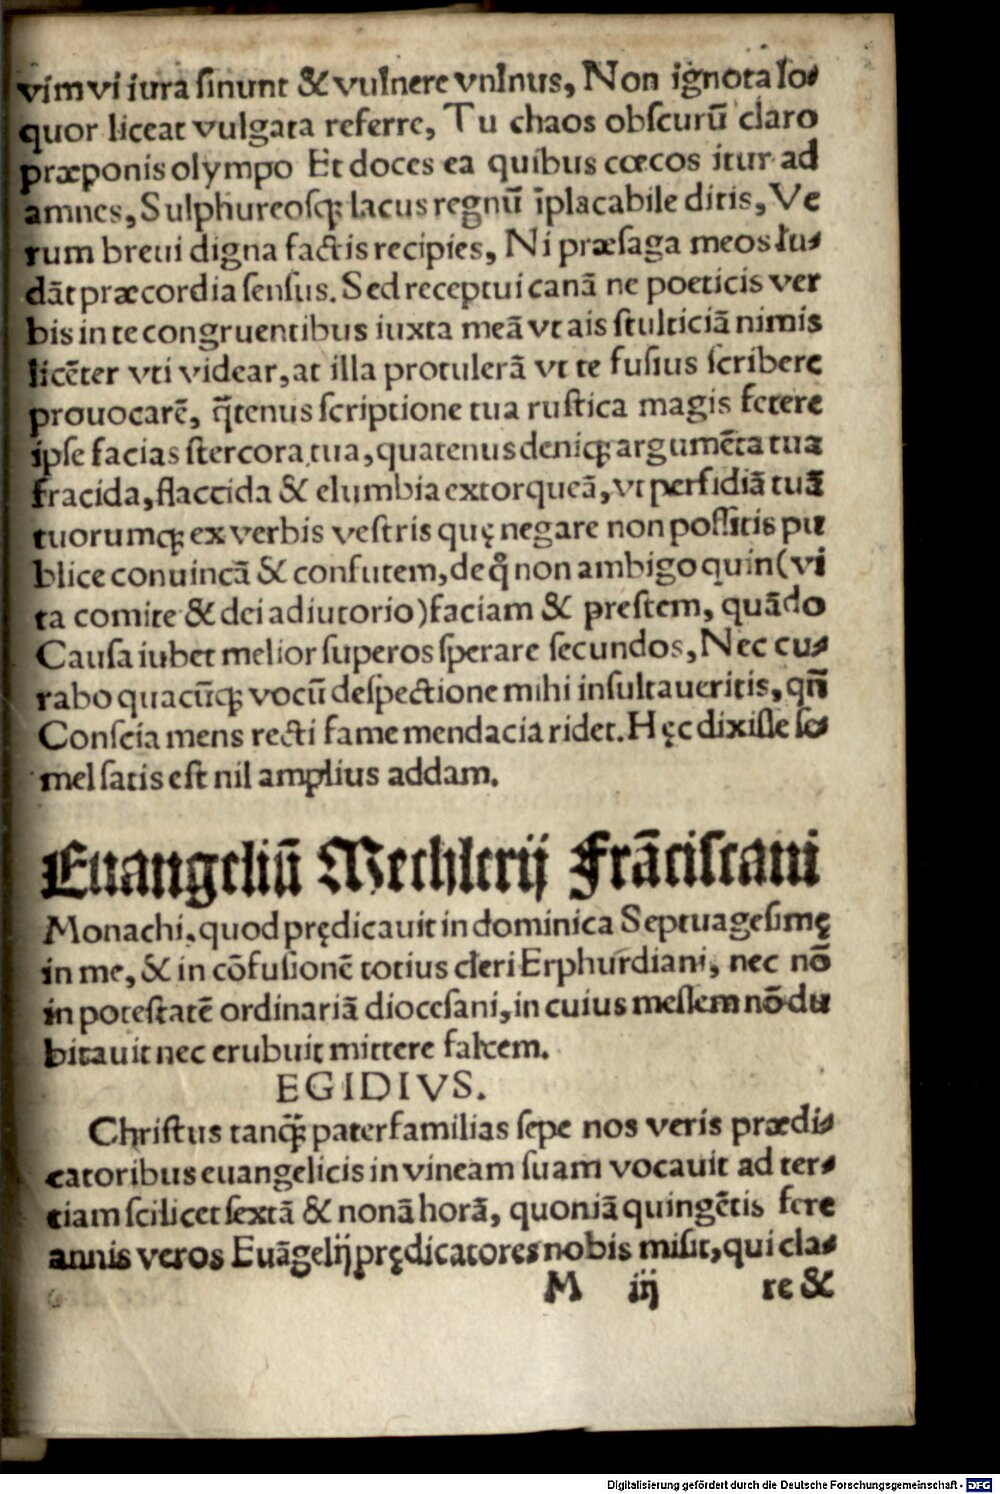 vim vi iura ſinunt & vulnere vnlnus, Non ignota lo⸗
quor liceat vulgata referre, Tu chaos obſcurū claro
præponis olympo Et doces ea quibus cœcos itur ad
amnes, Sulphureoſqꝫ lacus regnū īplacabile ditis, Ve
rum breui digna factis recipies, Ni præſaga meos lu⸗
dāt præcordia ſenſus. Sed receptui canā ne poeticis ver
bis in te congruentibus iuxta meā vt ais ſtulticiā nimis
licēter vti videar, at illa protulerā vt te fuſius ſcribere
prouocarē, q̄tenus ſcriptione tua ruſtica magis fetere
ipſe facias ſtercora tua, quatenus deniqꝫ argumēta tua
fracida, flaccida & elumbia extorqueā, vt perfidiā tuā
tuorumqꝫ ex verbis veſtris quę negare non poſſitis pu
blice conuincā & confutem, de qͦ non ambigo quin (vi
ta comite & dei adiutorio) faciam & preſtem, quādo
Cauſa iubet melior ſuperos ſperare ſecundos, Nec cu⸗
rabo quacūqꝫ vocū deſpectione mihi inſultaueritis, qn̄
Conſcia mens recti fame mendacia ridet. Hęc dixiſſe ſe⸗
mel ſatis eſt nil amplius addam.
Euangeliū Mechlerij Frāciſcani
Monachi, quod prędicauit in dominica Septuageſimę
in me, & in cōfuſionē totius cleri Erphurdiani, nec nō
in poteſtatē ordinariā dioceſani, in cuius meſſem nō du
bitauit nec erubuit mittere falcem.
EGIDIVS.
Chriſtus tanqꝫ̄ paterfamilias ſepe nos veris prædi⸗
catoribus euangelicis in vineam ſuam vocauit ad ter⸗
tiam ſcilicet ſextā & nonā horā, quoniā quingētis fere
annis veros Euāgelij prędicatores nobis miſit, qui cla⸗
M iij re &
Digitalisierung gefördert durch die Deutsche Forschungsgemeinschaft - DFG